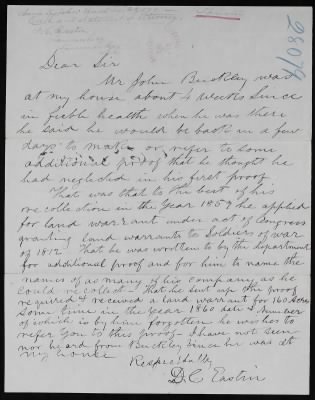 26079
Dear Sir
Mr John Buckley was
at my house about 4 weeks since
in feeble health when he was there
he said he would be back in a few
days to make or refer to some
additional proof that he thought he
had neglected in his first proof
That was that to the best of his
recollection in the Year 1859 he applied
for land warrant under act of Congress
granting land warrants to Soldiers of war
of 1812 That he was wrotten to by the Department
for additional proof and for him to name the
names of as many of his company as he
could recolect - that he sent up the proof
required & received a land warrant for 160 Acres
some time in the year 1860 date & number
of which is by him forgotten he wishes to
refer you to this proof - I have not seen
nor heard from Buckley since he was at
my house
Respectfully
D. C. Eastin